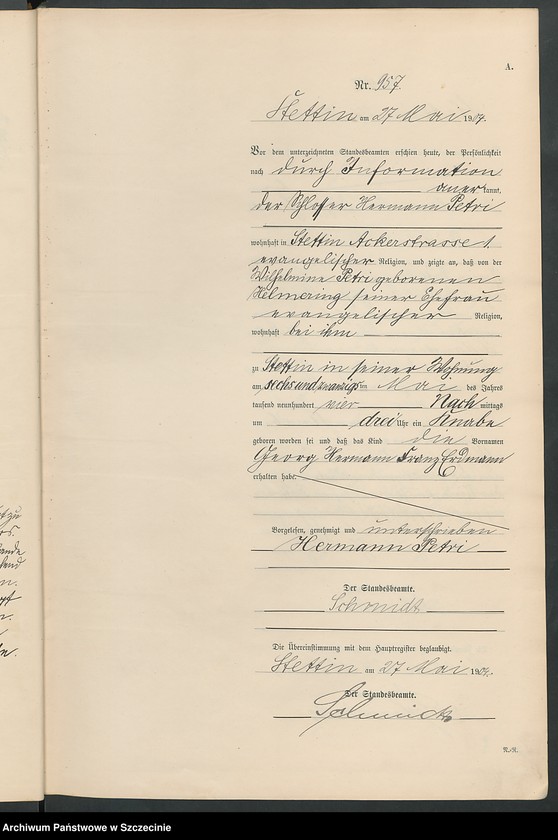 A.
Nr. 957.
Stettin am 27 Mai 1904.
Vor dem unterzeichneten Standesbeamten erschien heute, der Persönlichkeit
nach durch Information
anerkannt,
der Schlosser Hermann Petri
wohnhaft in Stettin Ackerstrasse 1.
evangelischer Religion, und zeigte an, daß von der
Wilhelmine Petri geborenen
Helmering seiner Ehefrau
evangelischer Religion,
wohnhaft bei ihm
zu Stettin in seiner Wohnung
am sechsundzwanzigsten Mai des Jahres
tausend neunhundert vier Nachmittags
um drei Uhr ein Knabe
geboren worden sei und daß das Kind die Vornamen
Georg Hermann Franz Erdmann
erhalten habe.
Vorgelesen, genehmigt und unterschrieben
Hermann Petri
Der Standesbeamte.
Schmidt
Die Übereinstimmung mit dem Hauptregister beglaubigt.
Stettin am 27 Mai 1904.
Der Standesbeamte.
Schmidt
Archiwum Państwowe w Szczecinie